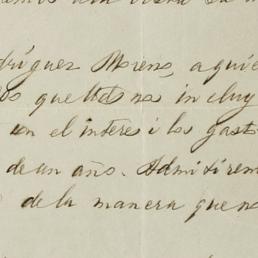 dríguez Moreno, a quie
os que Uds no incluy
con el interes i los gast
de un año. Admitirem
de la manera que no